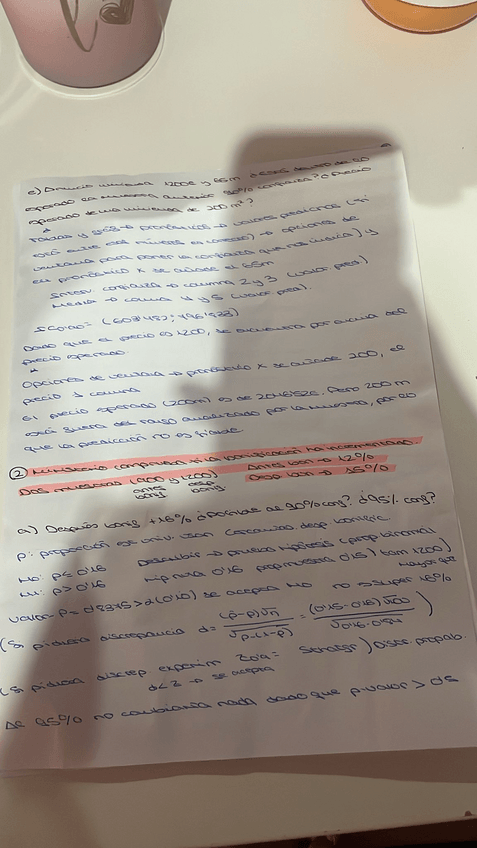 e) Anuncio vivienda 1200€ y 65m ¿está dentro de lo
esperado en muestra anterior 90% confianza? ¿Precio
esperado de una vivienda de 200 m²?
Tablas y gráf → pronósticos → valores predichos (si
está entre los niveles es correcto) → opciones de
ventana para poner la confianza que nos indica) y
en pronóstico X se añade el 65m
Interv. confianza → columna 2 y 3 (valor. pred)
Media → column 4 y 5 (valor. pred).
= (603'452; 996'988)
Dado que el precio es 1200, se encuentra por encima del
precio esperado.
Opciones de ventana → pronóstico X se añade 200, el
precio 1 column
El precio esperado (200m) es de 2046'52€. Pero 200 m
está fuera del rango analizado por la muestra, por lo
que la predicción no es fiable
② Ministerio comprueba si la bonificación ha incrementado.
Dos muestras (900 y 1200) Antes bon → 12%
antes desp Desp bon → 15%
bonif bonif.
a) Después bonif +16% ¿posible al 90% conf? ¿95% conf?
p: proporción es univ. con desp bonific.
H0: p ≤ 0'16 Describir → pruebas hipótesis (prop binomial
H1: p > 0'16 hip nula 0'16 prop muestra 0'15) tam 1200)
Mayor que
Valor-P = 0'8375 > α (0'10) se acepta H0 no super 16%
(Si pidiera discrepancia d = (p̂-p)√n / √p·(1-p) = (0'15-0'16)√1200 / √0'16·0'84)
(Si pidiera discrep Zα = ) Distr. probab.
d < Z → se acepta
Al 95% no cambiaría nada dado que p-valor > α